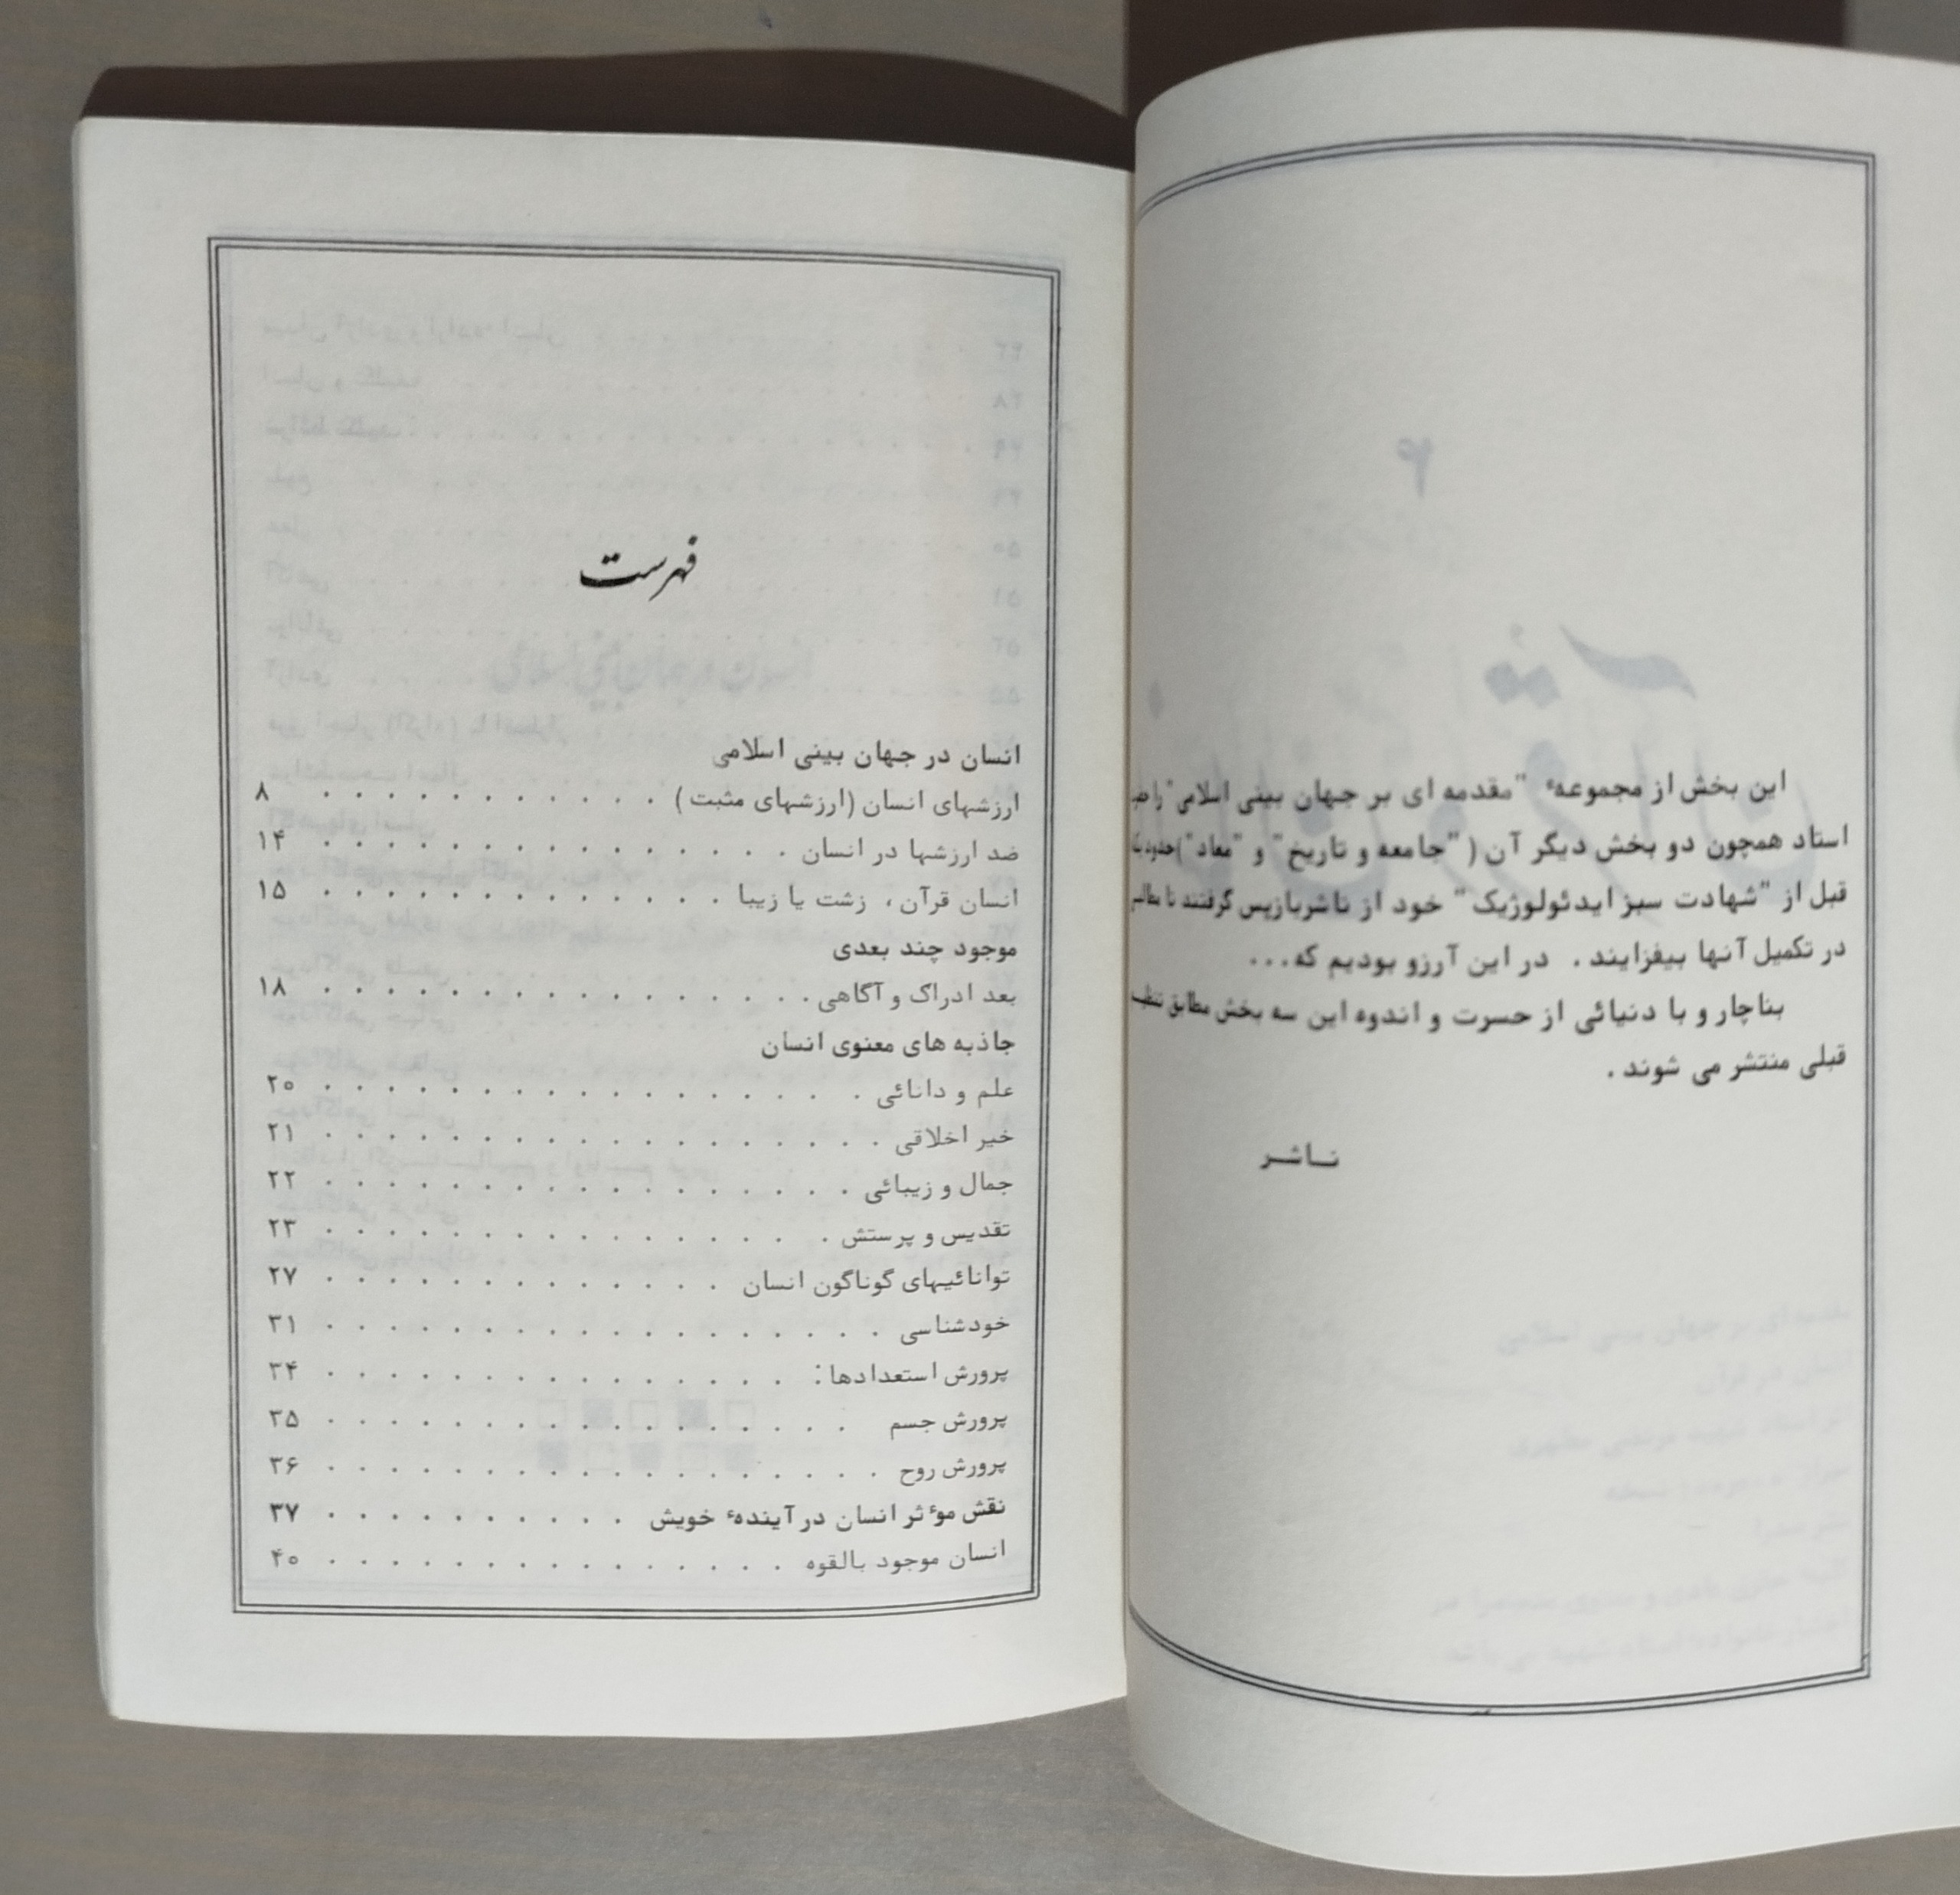 این بخش از مجموعهٔ "مقدمه ای بر جهان بینی اسلامی" را
استاد همچون دو بخش دیگر آن ( "جامعه و تاریخ" و "معاد" ) حدود
قبل از "شهادت سبز ایدئولوژیک" خود از ناشر بازپس گرفتند تا
در تکمیل آنها بیفزایند . در این آرزو بودیم که...
بناچار و با دنیائی از حسرت و اندوه این سه بخش مطابق
قبلی منتشر می شوند .
ناشر
فهرست
انسان در جهان بینی اسلامی
ارزشهای انسان (ارزشهای مثبت) . . . . . . . . . . . ۸
ضد ارزشها در انسان . . . . . . . . . . . . . . . ۱۴
انسان قرآن ، زشت یا زیبا . . . . . . . . . . . . . ۱۵
موجود چند بعدی
بعد ادراک و آگاهی . . . . . . . . . . . . . . . . ۱۸
جاذبه های معنوی انسان
علم و دانائی . . . . . . . . . . . . . . . . . ۲۰
خیر اخلاقی . . . . . . . . . . . . . . . . . . ۲۱
جمال و زیبائی . . . . . . . . . . . . . . . . . ۲۲
تقدیس و پرستش . . . . . . . . . . . . . . . . ۲۳
توانائیهای گوناگون انسان . . . . . . . . . . . . . ۲۷
خودشناسی . . . . . . . . . . . . . . . . . . ۳۱
پرورش استعدادها : . . . . . . . . . . . . . . . ۳۴
پرورش جسم . . . . . . . . . . . . . . . . . ۳۵
پرورش روح . . . . . . . . . . . . . . . . . . ۳۶
نقش موٴثر انسان در آیندهٔ خویش . . . . . . . . . . ۳۷
انسان موجود بالقوه . . . . . . . . . . . . . . . ۴۰